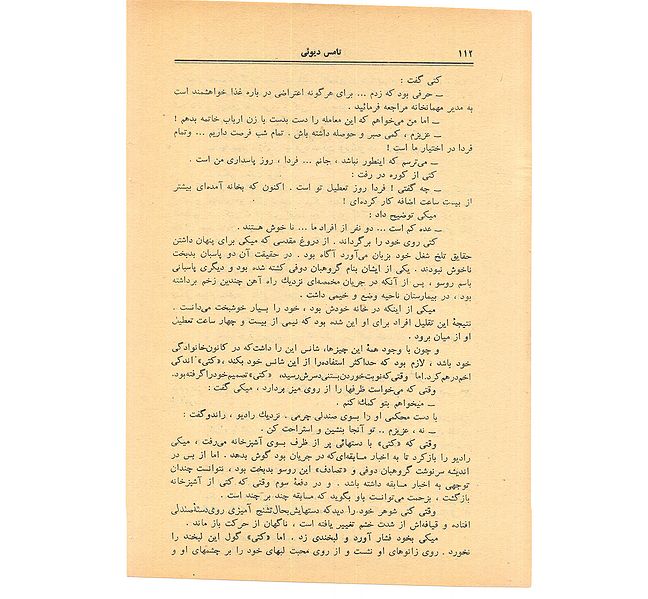 ۱۱۲
تامس دیوئی
کتی گفت :
ــ حرفی بود که زدم ... برای هرگونه اعتراضی در باره غذا خواهشمند است
به مدیر مهمانخانه مراجعه فرمائید .
ــ اما من می‌خواهم که این معامله را دست بدست با زن ارباب خاتمه بدهم !
ــ عزیزم ، کمی صبر و حوصله داشته باش . تمام شب فرصت داریم ... وتمام
فردا در اختیار ما است !
ــ می‌ترسم که اینطور نباشد ، جانم ... فردا ، روز پاسداری من است .
کتی از کوره در رفت :
ــ چه گفتی ! فردا روز تعطیل تو است . اکنون که بخانه آمده‌ای بیشتر
از بیست ساعت اضافه کار کرده‌ای !
میکی توضیح داد :
ــ عده کم است ... دو نفر از افراد ما ... نا خوش هستند .
کتی روی خود را برگرداند . از دروغ مقدسی که میکی برای پنهان داشتن
حقایق تلخ شغل خود بزبان می‌آورد آگاه بود . در حقیقت آن دو پاسبان بدبخت
ناخوش نبودند . یکی از ایشان بنام گروهبان دوفی کشته شده بود و دیگری پاسبانی
باسم روسو ، پس از آنکه در جریان مخمصه‌ای نزدیك راه آهن چندین زخم برداشته
بود ، در بیمارستان ناحیه وضع و خیمی داشت .
میکی از اینکه در خانه خودش بود ، خود را بسیار خوشبخت می‌دانست .
نتیجهٔ این تقلیل افراد برای او این شده بود که نیمی از بیست و چهار ساعت تعطیل
او از میان برود .
و چون با وجود همهٔ این چیزها، شانس این را داشت‌که در کانون‌خانوادگی
خود باشد ، لازم بود که حداکثر استفاده‌را از این شانس خود بکند ، «کتی» اندکی
اخم‌درهم‌کرد. اما وقتی‌که‌نوبت‌خوردن‌بستنی‌دسرش‌رسید، «کتی» تصمیم‌خودراگرفته‌بود.
وقتی که می‌خواست ظرفها را از روی میز بردارد ، میکی گفت :
ــ میخواهم بتو کمك کنم .
با دست محکمی او را بسوی صندلی چرمی ، نزدیك رادیو ، راندوگفت :
ــ نه ، عزیزم .. تو آنجا بنشین و استراحت کن .
وقتی که «کتی» با دستهائی پر از ظرف بسوی آشپزخانه می‌رفت ، میکی
رادیو را بازکرد تا به اخبار مسابقه‌ای‌که در جریان بود گوش بدهد . اما از بس در
اندیشه سرنوشت گروهبان دوفی و «تصادف» این روسو بدبخت بود ، نتوانست چندان
توجهی به اخبار مسابقه داشته باشد . و در دفعهٔ سوم وقتی که کتی از آشپزخانه
بازگشت ، بزحمت می‌توانست باو بگوید که مسابقه چند بر چند است .
وقتی کتی شوهر خود را دیدکه دستهایش‌بحال‌تشنج آمیزی روی‌دستهٔ‌صندلی
افتاده و قیافه‌اش از شدت خشم تغییر یافته است ، ناگهان از حرکت باز ماند .
میکی بخود فشار آورد و لبخندی زد . اما «کتی» گول این لبخند را
نخورد . روی زانوهای او نشست و از روی محبت لبهای خود را بر چشمهای او و